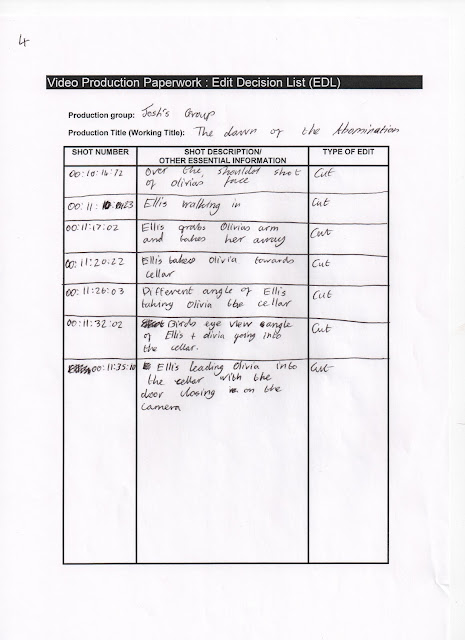 4
Video Production Paperwork : Edit Decision List (EDL)
Production group: Josh's Group
Production Title (Working Title): The dawn of the Abomination
SHOT NUMBER SHOT DESCRIPTION/ TYPE OF EDIT
OTHER ESSENTIAL INFORMATION
00:10:14:12 Over the shoulder shot Cut
of olivias face
00:11:10:23 Ellis walking in Cut
00:11:17:02 Ellis grabs Olivias arm Cut
and takes her away
00:11:20:22 Ellis takes olivia towards Cut
cellar
00:11:26:03 Different angle of Ellis Cut
taking Olivia the cellar
00:11:32:02 Birds eye view angle Cut
of Ellis + olivia going into
the cellar.
00:11:35:10 Ellis leading olivia into Cut
the cellar with the
door closing on the
camera